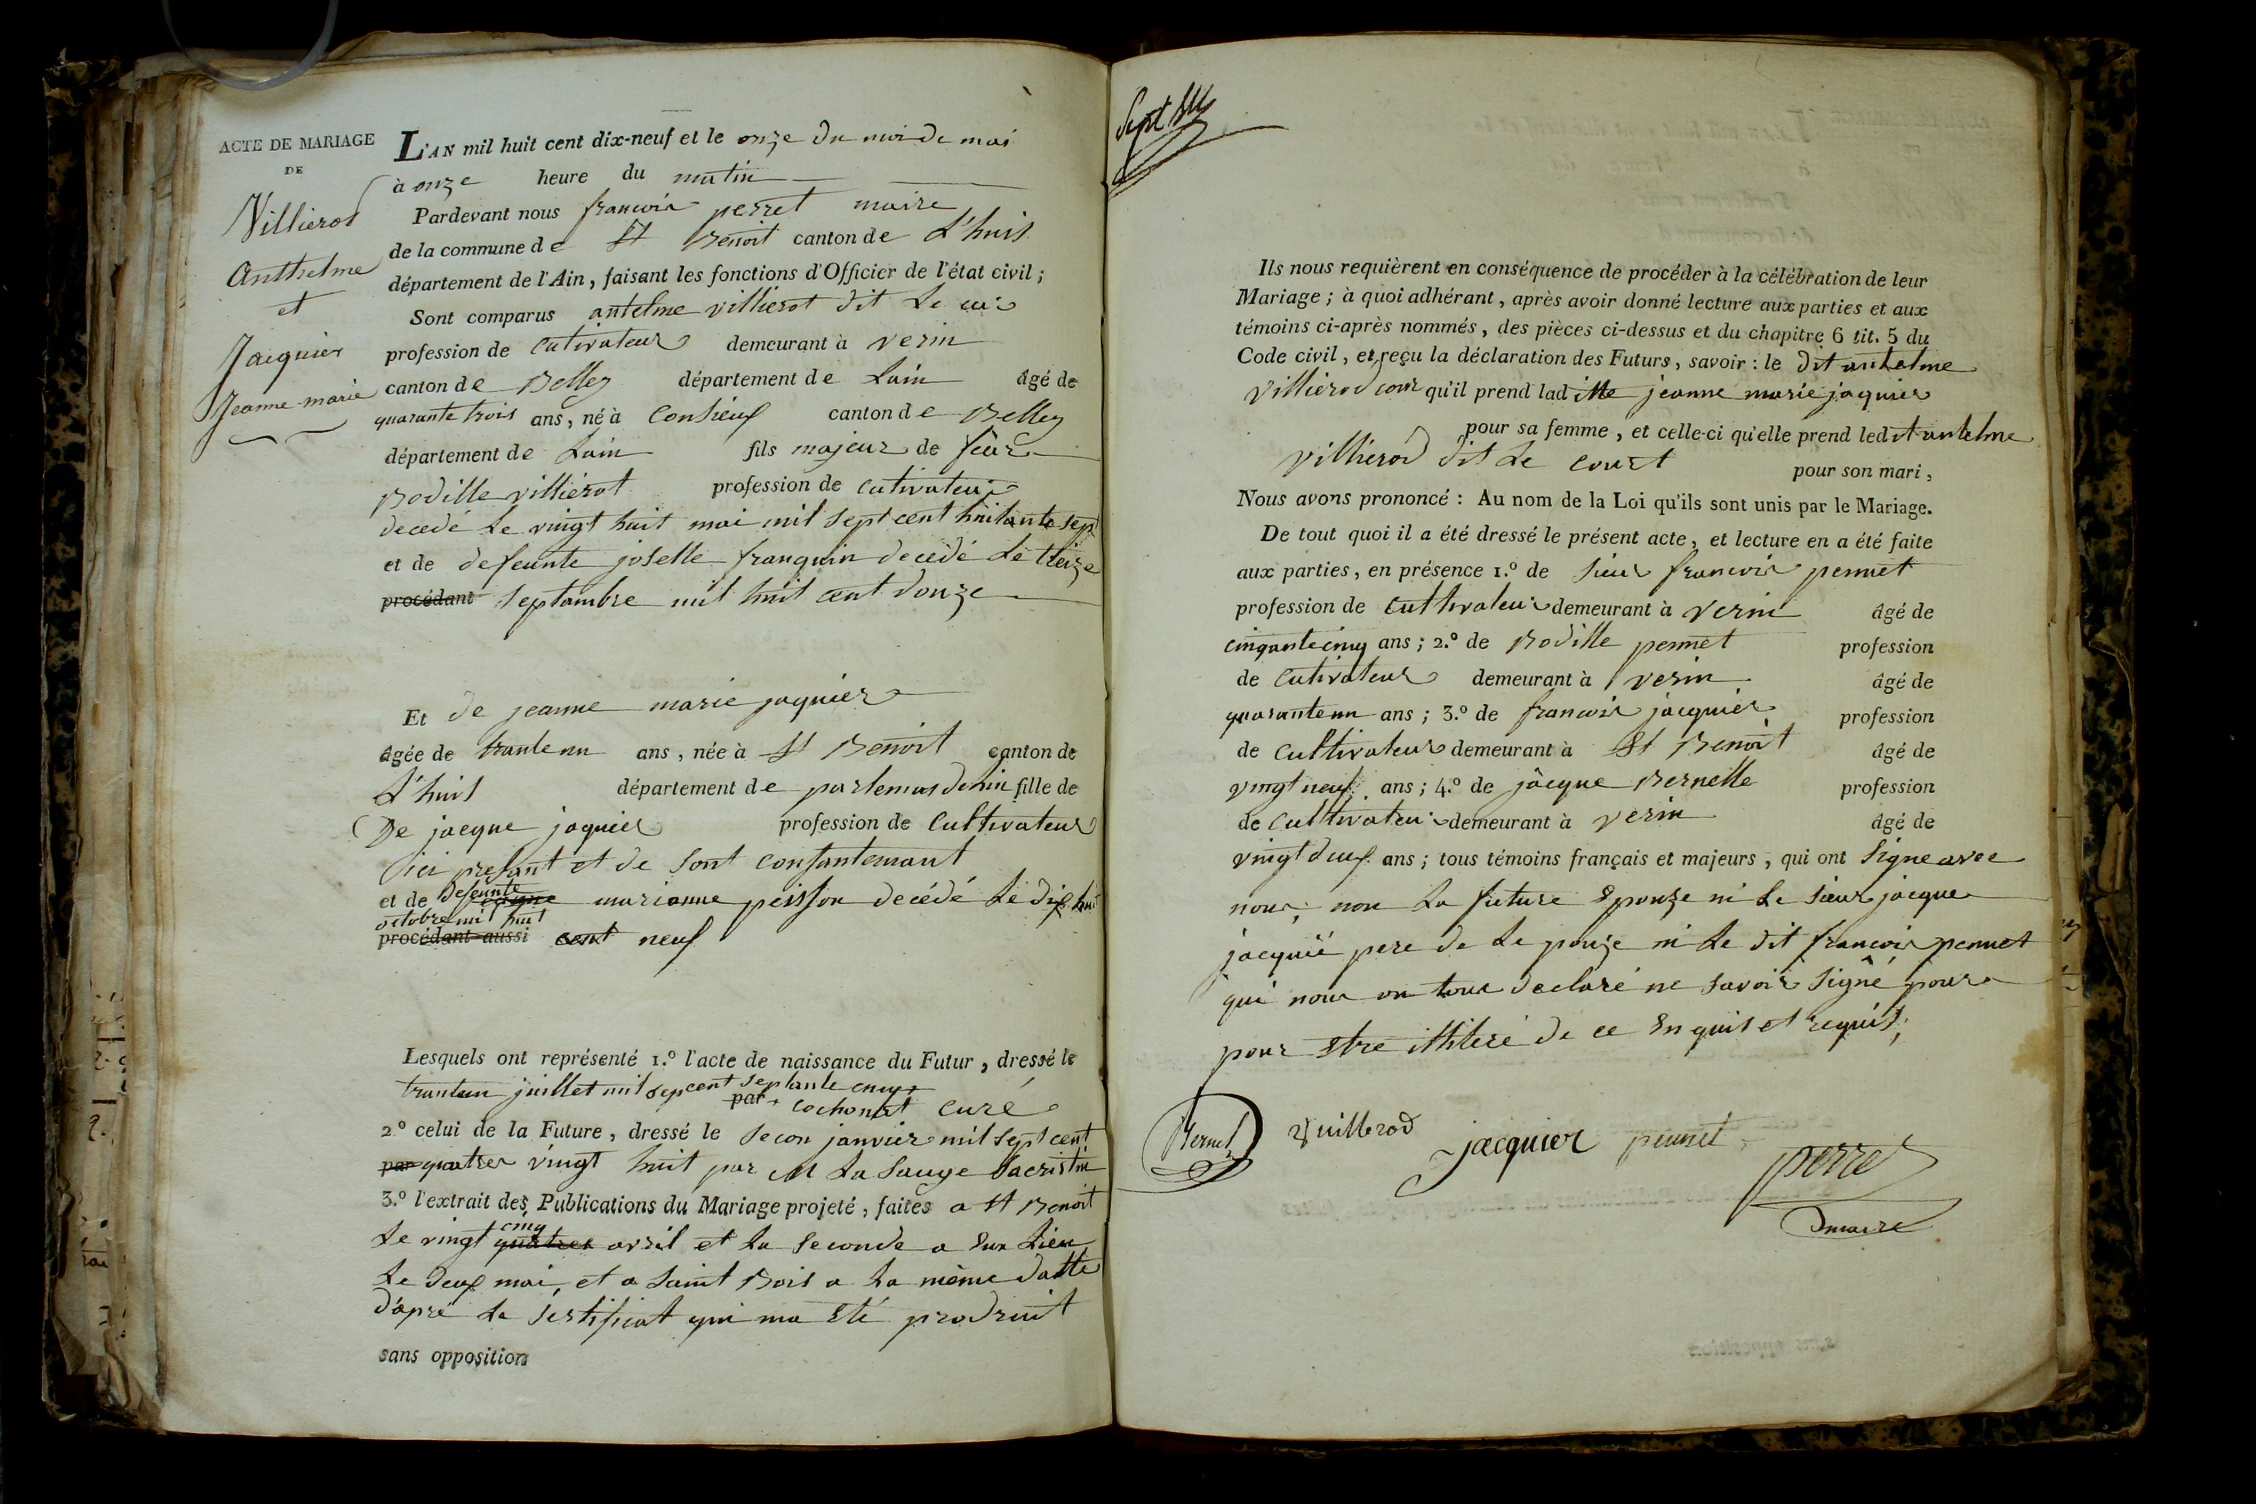 ACTE DE MARIAGE
DE
Villierod
Anthelme
et
Jacquier
Jeanne-marie
L'AN mil huit cent dix-neuf et le onze du moi de mai
à onze heure du matin
Pardevant nous francois perret maire
de la commune de St Benoit canton de L'huis
département de l'Ain, faisant les fonctions d'Officier de l'état civil;
Sont comparus antelme villierot dit Le
profession de cutivateur demeurant à verin
canton de Belley département de Lain âgé de
quarante trois ans, né à Conzieux canton de Belley
département de Lain fils majeur de feur
Bodille villierot profession de cutivateur
decedé Le vingt huit mai mil sept cent huitante sept
et de defeunte joselle franquin decedé Le treize
procédant septambre mil huit cent donze
Et de jeanne marie jaquier
âgée de trante un ans, née à St Benoit canton de
L'huis département de parlemas denin fille de
De jacque jaquier profession de Cultivateur
ici presant et de sont consantemant
et de defeunte marianne peisson decédé Le dix hui
octobre mil huit
procédant aussi cent neuf
Lesquels ont représenté 1.º l'acte de naissance du Futur, dressé le
trantun juillet mil sepcent septante cinq
par cochonat curé
2.º celui de la Future, dressé le secon janvier mil sept cent
par quatrer vingt huit par M La sauge sacristin
3.º l'extrait des Publications du Mariage projeté, faites a St Benoit
Le vingt cinq quatres avril et La seconde a Eux Lieu
Le deux mai, et a saint Bois a La même datte
d'apré Le sertificat qui ma Eté prodruit
sans opposition
Sept
Ils nous requièrent en conséquence de procéder à la célébration de leur
Mariage; à quoi adhérant, après avoir donné lecture aux parties et aux
témoins ci-après nommés, des pièces ci-dessus et du chapitre 6 tit. 5 du
Code civil, et reçu la déclaration des Futurs, savoir: le dit antelme
villierod cour qu'il prend laditte jeanne marie jaquier
pour sa femme, et celle-ci qu'elle prend ledit antelme
villierod dit Le court pour son mari,
Nous avons prononcé: Au nom de la Loi qu'ils sont unis par le Mariage.
De tout quoi il a été dressé le présent acte, et lecture en a été faite
aux parties, en présence 1.º de sieur francois pennet
profession de cultivateur demeurant à verin âgé de
cinqantecinq ans; 2.º de Bodille pennet profession
de cutivateur demeurant à verin âgé de
quarantenn ans; 3.º de francois jacquier profession
de cultivateur demeurant à St Benoit âgé de
vingt neuf ans; 4.º de jâcque Bernelle profession
de cultivateur demeurant à verin âgé de
vingt deux ans; tous témoins français et majeurs, qui ont signe avec
nous; non La future Epouze ni Le sieur jacque
jacquié pere de Le pouze ni Le dit francois pennet
qui nous on tous declaré ne savoir signé pour
pour Etre ittileré de ce Enquis et requis;
Bernet Vuillerod jacquier pennet perret
maire